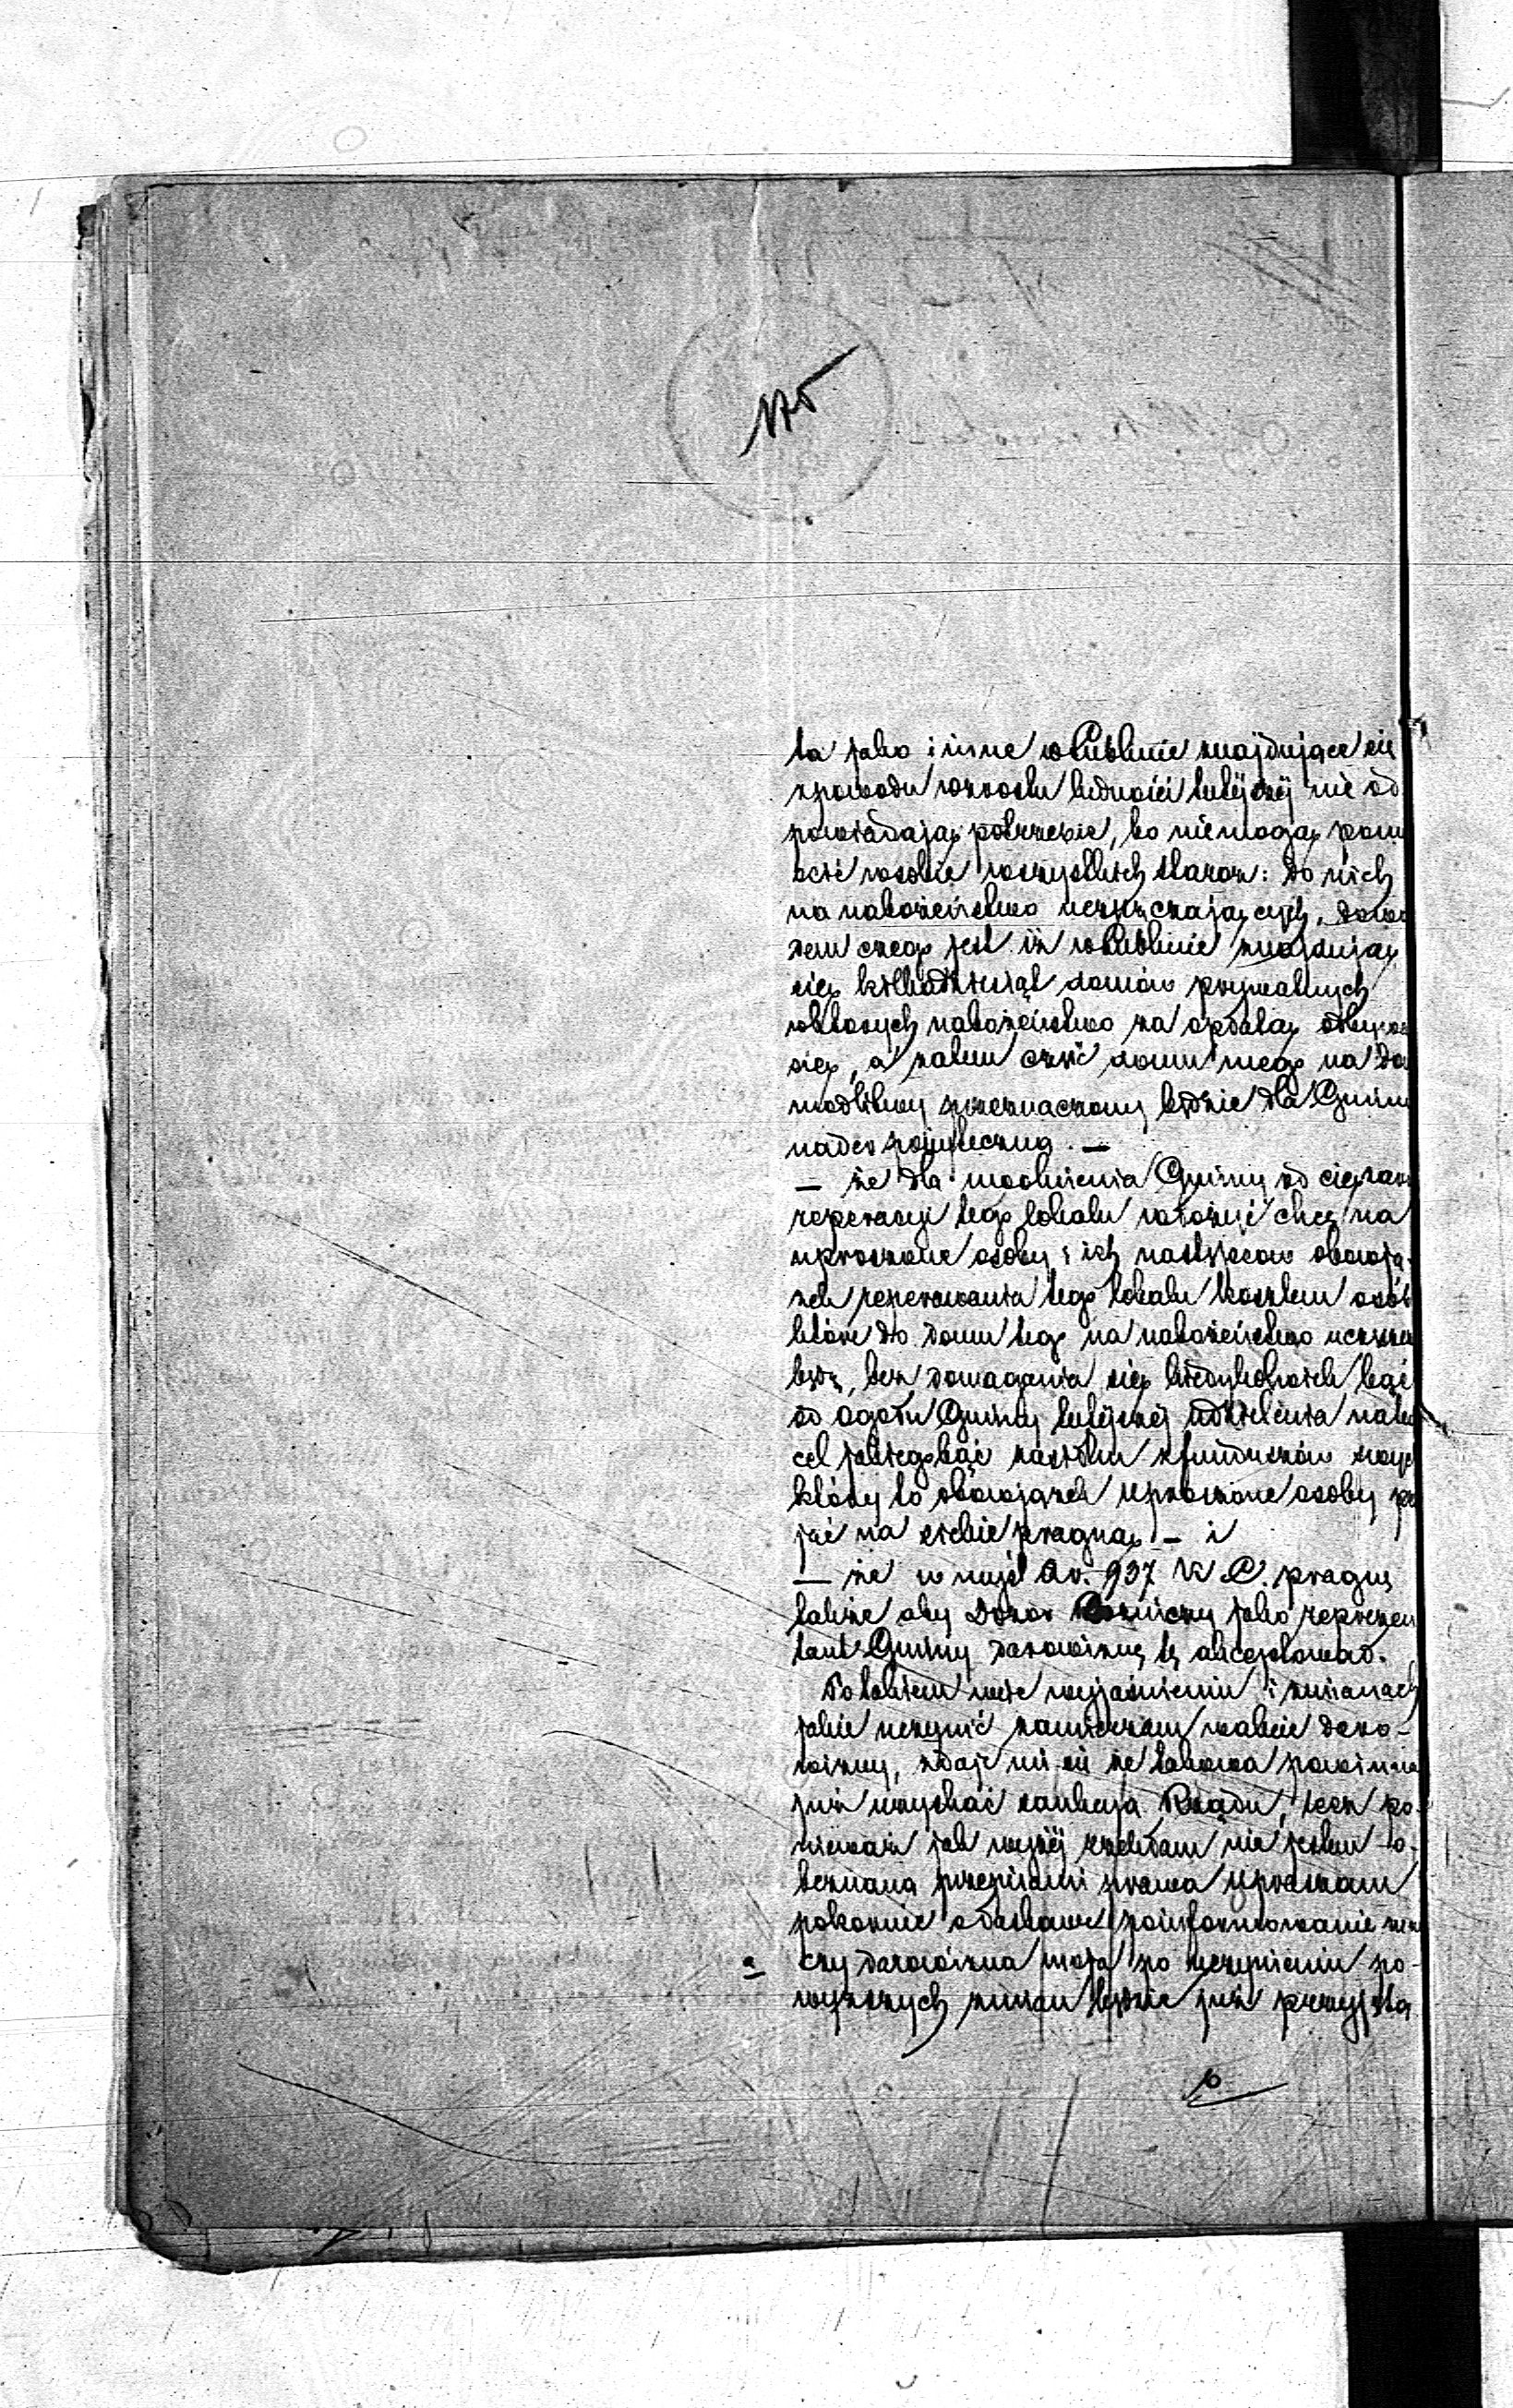 175
ta jako i inne w Lublinie znajdujące się
zpowodu wzrostu ludności tutejszej nie od
powiadają potrzebie, bo niemogą pomi
ścić w sobie wszystkich staroz: do nich
na nabożeństwo uczęszczających, dowo
dem czego jest iż w Lublinie znajdują
się kilkadziesiąt domów prywatnych
w których nabożeństwo za opłatą odbywa
się, a zatem część domu mego na dom
modlitwy przeznaczony będzie dla Gminy
nader pożyteczną. —
— że dla uwolnienia Gminy od ciężaru
reperacyi tego lokalu włożyć chcę na
uproszone osoby i ich następców obowią-
zek reperowania tego lokalu kosztem osób
które do domu tego na nabożeństwo uczęszcz
będą, bez domagania się kiedykolwiek bądź
od ogółu Gminy tutejszej udzielenia na ten
cel jakiegobądź zasiłku z funduszów swych
który to obowiązek uproszone osoby przy
jąć na siebie pragną — i
— że w myśl Ar. 937 K. C. pragnę
także aby Dozór Bożniczny jako reprezen
tant Gminy darowiznę tę akceptował.
Po takiem więc wyjaśnieniu i zmianach
jakie uczynić zamierzam w akcie daro-
wizny, zdaje mi się że takowa powinna
już uzyskać sankcją Rządu, lecz po-
nieważ jak wyżej rzekłam nie jestem o-
beznaną z przepisami prawa upraszam
pokornie o łaskawe poinformowanie mnie
a czy darowizna moja po uczynieniu po-
wyższych zmian będzie już przyjętą